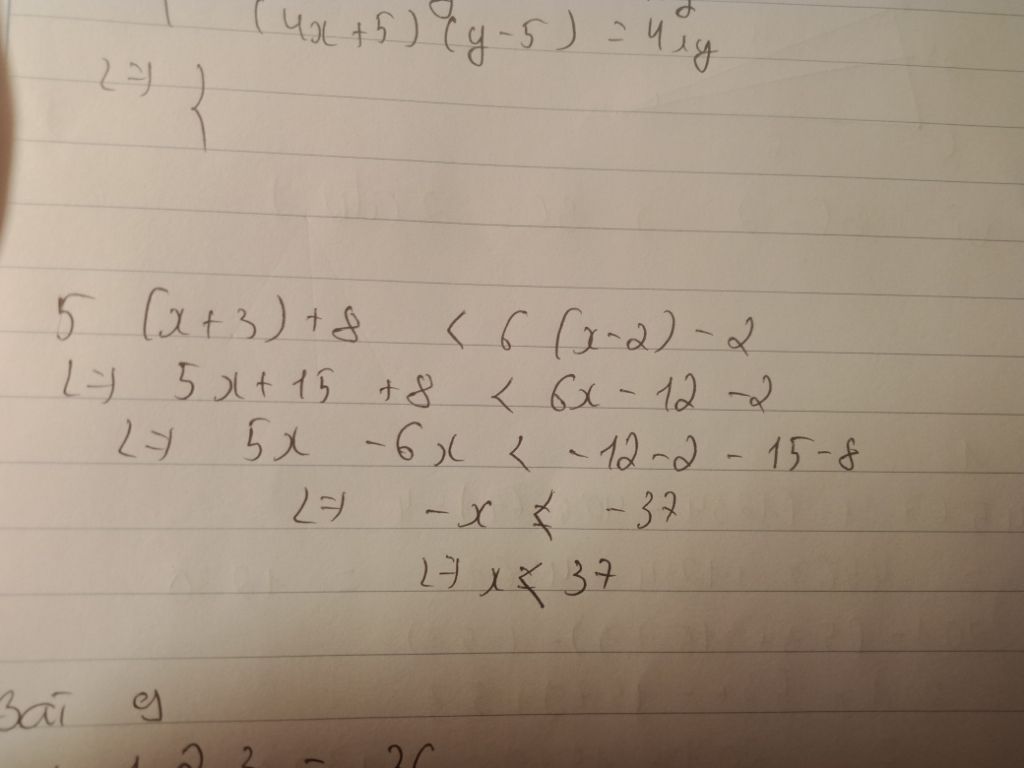 (4x+5)(y-5) = 4xy
<=> {
5 (x+3)+8 < 6 (x-2)-2
<=> 5x+15 +8 < 6x-12-2
<=> 5x -6x < -12-2-15-8
<=> -x < -37
<=> x < 37
Bài 9